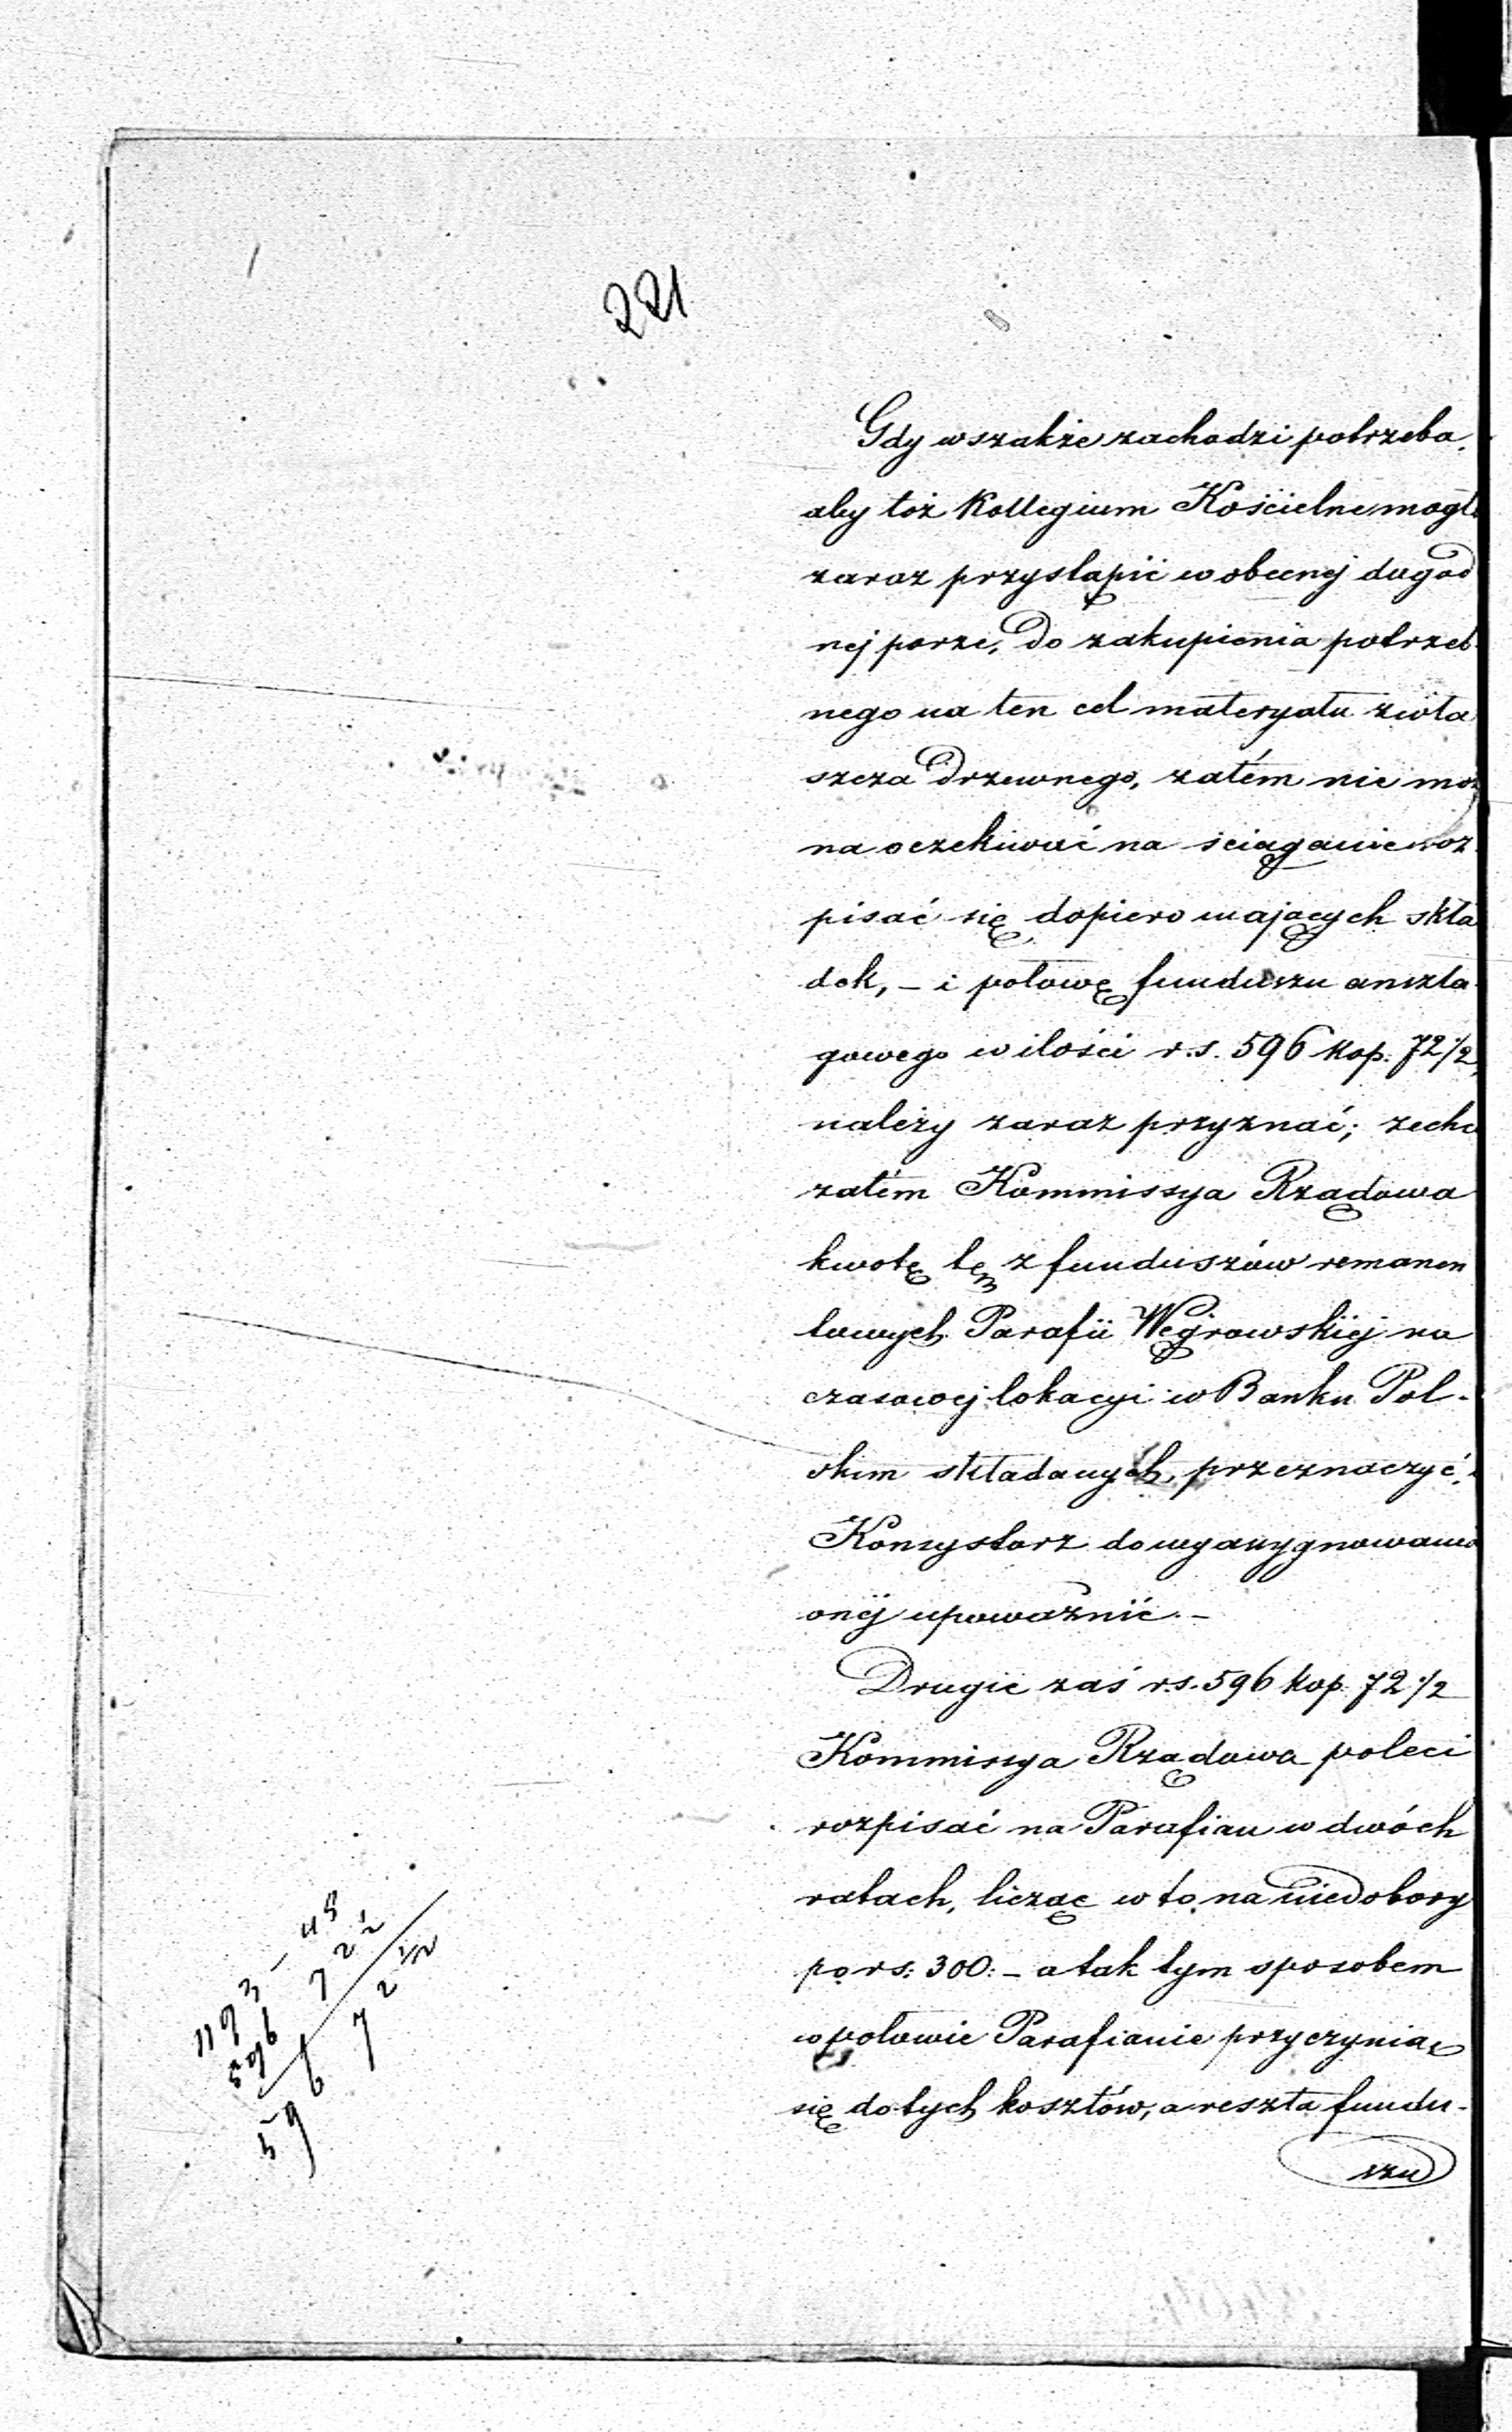 221
Gdy wszakże zachodzi potrzeba,
aby toż Kollegium Kościelne mogło
zaraz przystąpić w obecnej dogod
nej porze, do zakupienia potrzeb
nego na ten cel materyału zwła
szcza drzewnego, zatém nie moż
na oczekiwać na ściąganie roz
pisać się dopiero mających skła
dek, – i połowę funduszu anszla
gowego w ilości r.s. 596 kop. 72 1/2,
należy zaraz przyznać; zechce
zatém Kommissya Rządowa
kwotę tę z funduszów remanen
towych Parafii Węgrowskiéj na
czasowej lokacyi w Banku Pol-
skim składanych, przeznaczyć, i
Konsystorz do wyasygnowania
onéj upoważnić. –
Drugie zaś r.s. 596 kop. 72 1/2
Kommissya Rządowa poleci
rozpisać na Parafian w dwóch
ratach, licząc w to na niedobory
po rs: 300: – a tak tym sposobem
w połowie Parafianie przyczynią
się do tych kosztów, a reszta fundu-
szu
1193 – 45
596 72 1/2
596 72 1/2